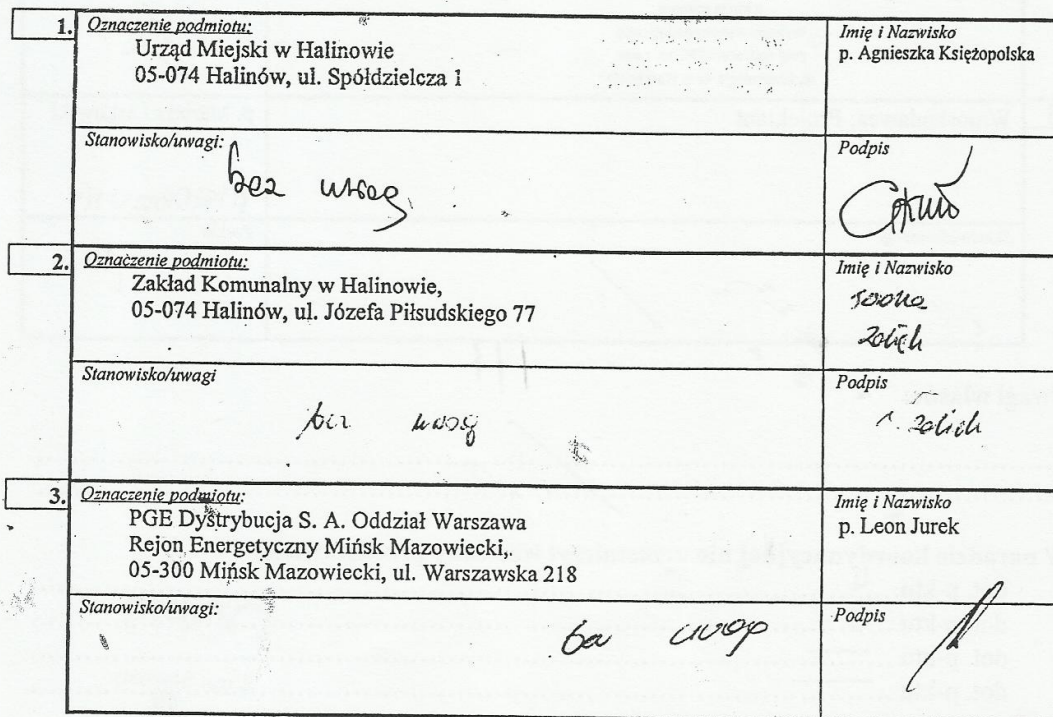 1.
Oznaczenie podmiotu:
Urząd Miejski w Halinowie
05-074 Halinów, ul. Spółdzielcza 1
Imię i Nazwisko
p. Agnieszka Księżopolska
Stanowisko/uwagi:
bez uwag
Podpis
2.
Oznaczenie podmiotu:
Zakład Komunalny w Halinowie,
05-074 Halinów, ul. Józefa Piłsudskiego 77
Imię i Nazwisko
Stanowisko/uwagi
bez uwag
Podpis
3.
Oznaczenie podmiotu:
PGE Dystrybucja S. A. Oddział Warszawa
Rejon Energetyczny Mińsk Mazowiecki,
05-300 Mińsk Mazowiecki, ul. Warszawska 218
Imię i Nazwisko
p. Leon Jurek
Stanowisko/uwagi:
bez uwag
Podpis